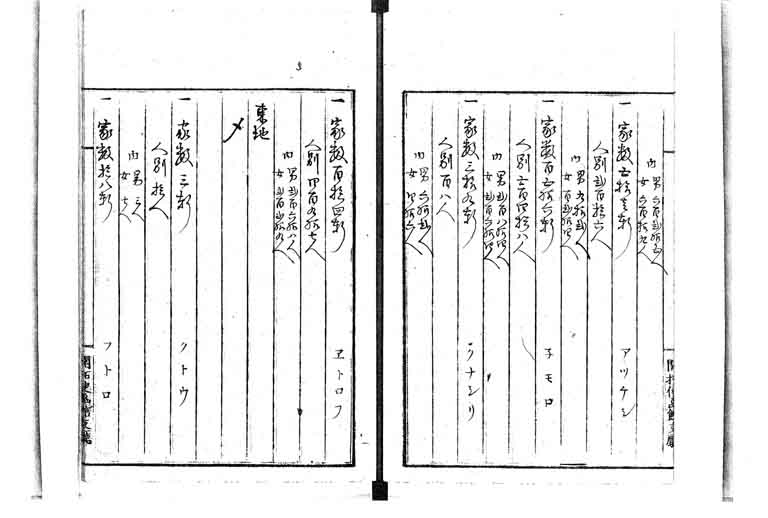 内
男六百弐拾五人
女六百拾九人
一 家数五拾壱軒 アツケシ
人別弐百拾六人
内
男九拾弐人
女百弐拾四人
一 家数百五拾六軒 子モロ
人別五百四拾八人
内
男弐百八拾四人
女弐百六拾四人
一 家数三拾九軒 クナシリ
人別百八人
内
男六拾弐人
女四拾六人
開拓使函館支廳
一 家数百拾四軒 ヱトロフ
人別四百九拾七人
内
男弐百六拾八人
女弐百弐拾九人
東地
〆
一 家数三軒 クトウ
人別拾人
内
男三人
女七人
一 家数拾八軒 フトロ
開拓使函館支廳